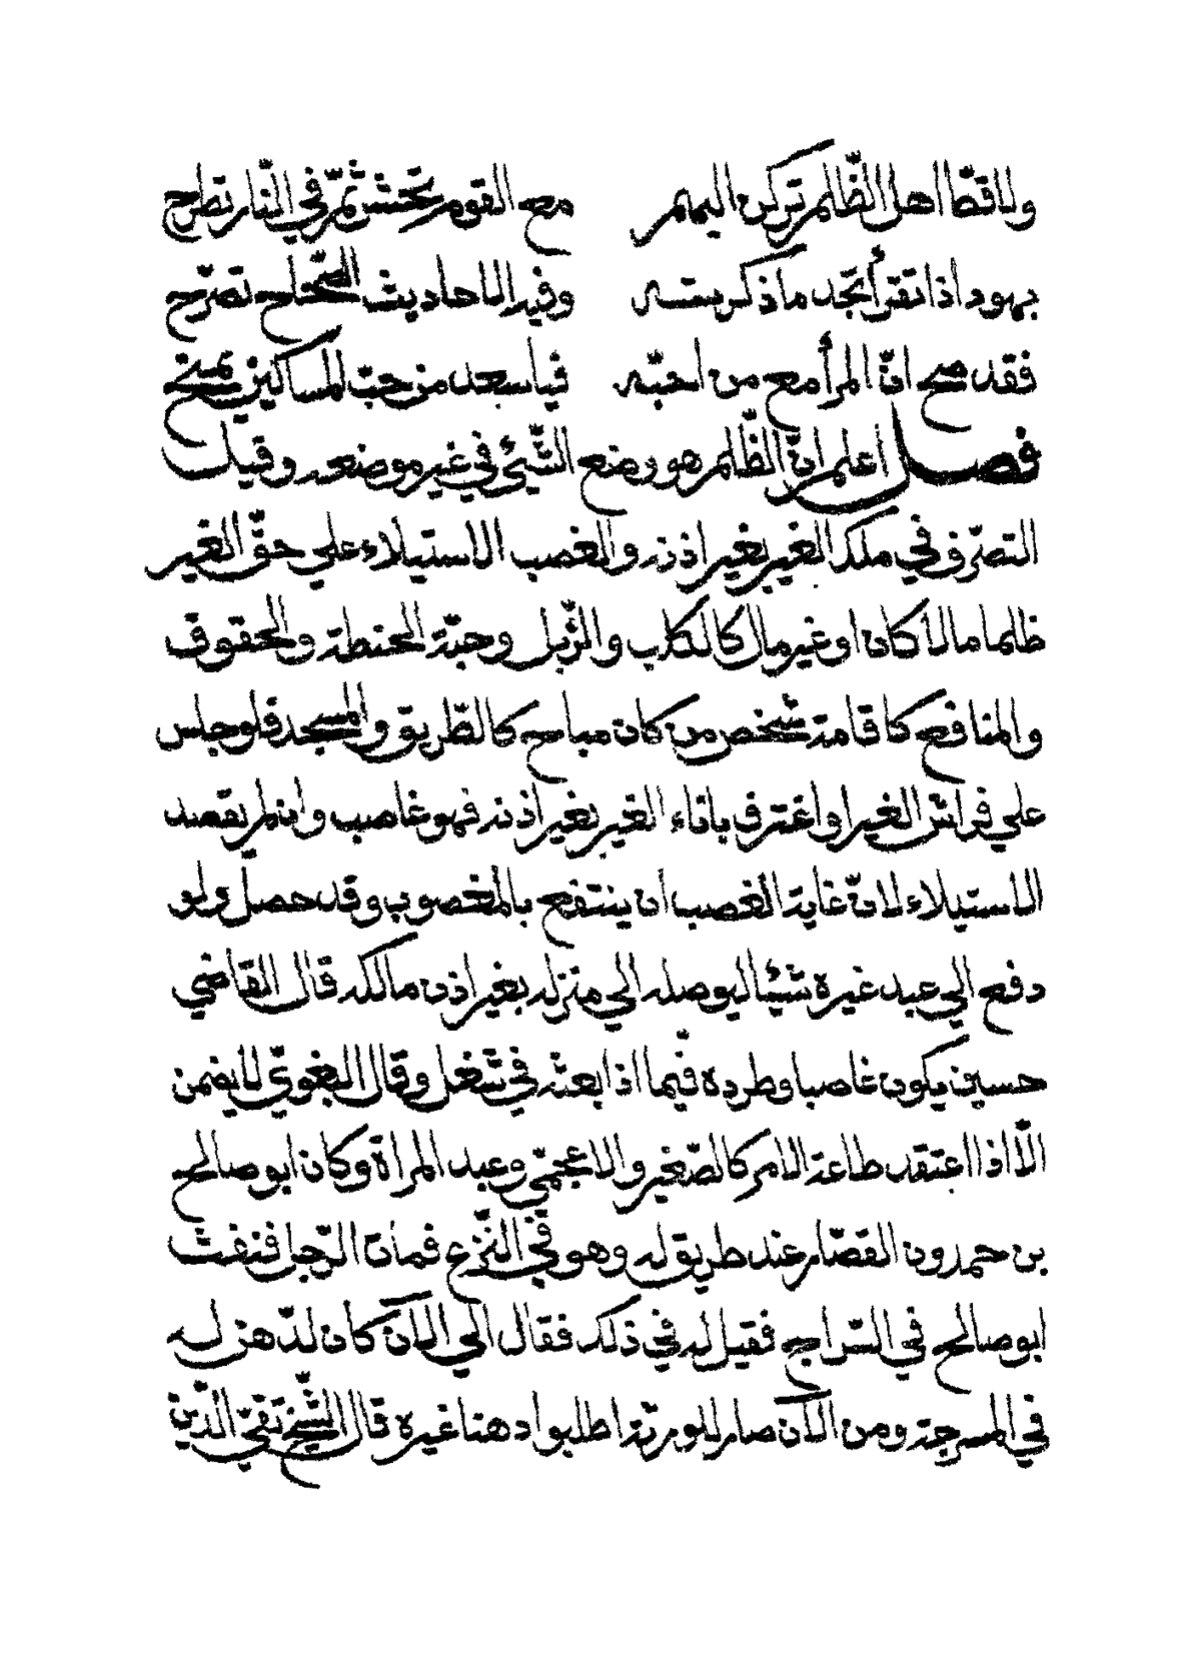 ولا قطّ اهل الظّلم تركن اليهم مع القوم تحشر ثمّ في النّار تطرح
بهود اذا تقرأ تجد ما ذكرته وفيه الاحاديث الصّحاح تصرّح
فقد صح انّ المرأ مع من احبّه فيا سعد من حبّ المساكين يمنح
فصل اعلم انّ الظّلم هو وضع الشّيئ في غير موضعه وقيل
التصرّف في ملك الغير بغير اذنه والغصب الاستيلاء علي حقّ الغير
ظلما مالا كان او غير مال كالكلب والزّبل وحبّة الحنطة والحقوق
والمنافع كاقامة شخص من كان مباح كالطّريق والمسجد فلو جلس
علي فراش الغير او اغترف باناء الغير بغير اذنه فهو غاصب وان لم يقصد
الاستيلاء لانّ غاية الغصب ان ينتفع بالمغصوب وقد حصل ولو
دفع الي عبد غيره شيئا ليوصله الي منزله بغير اذن مالكه قال القاضي
حسين يكون غاصبا وطرده فيما اذا بعثه في شغل وقال البغويّ لا يضمن
الّا اذا اعتقد طاعة الامر كالصّغير والاعجميّ وعبد المرأة وكان ابو صالح
بن حمدون القصّار عند طريق له وهو في النّزع فمات الرّجل فنفث
ابو صالح في السّراج فقيل له في ذلك فقال الي الآن كان لدّهن له
في المسرجة ومن الآن صار للورثة اطلبوا دهنا غيره قال الشّيخ تقيّ الدّين